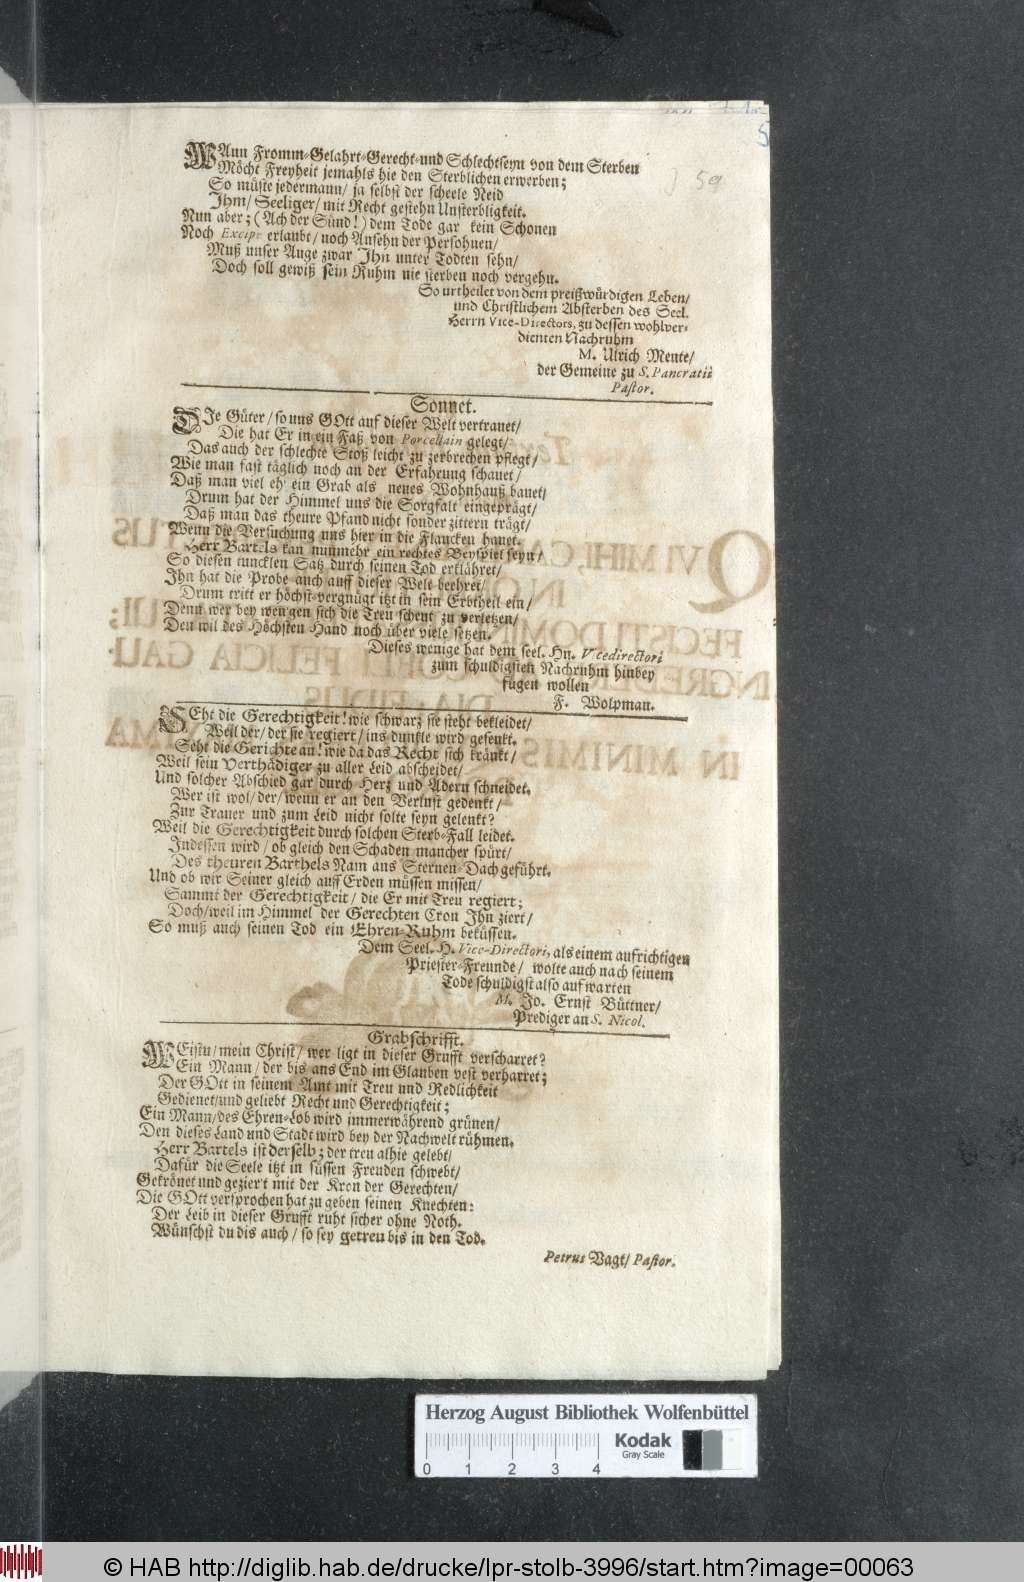 WAnn Fromm-Gelahrt-Gerecht-und Schlechtseyn von dem Sterben
Möcht Freyheit jemahls hie den Sterblichen erwerben;
So müste jedermann/ ja selbst der scheele Neid
Ihm/ Seeliger/ mit Recht gestehn Unsterbligkeit.
Nun aber; (Ach der Sünd!) dem Tode gar kein Schonen
Noch Excipe erlaubt/ noch Ansehn der Persohnen/
Muß unser Auge zwar Ihn unter Todten sehn/
Doch soll gewiß sein Ruhm nie sterben noch vergehn.
So urtheilet von dem preißwürdigen Leben/
und Christlichem Absterben des Seel.
Herrn Vice-Directors, zu dessen wohlver-
dienten Nachruhm
M. Ulrich Mente/
der Gemeine zu S. Pancratii
Pastor.
Sonnet.
DIe Güter/ so uns GOtt auf dieser Welt vertrauet/
Die hat Er in ein Faß von Porcellain gelegt/
Das auch der schlechte Stoß leicht zu zerbrechen pflegt/
Wie man fast täglich noch an der Erfahrung schauet/
Daß man viel eh' ein Grab als neues Wohnhauß bauet/
Drum hat der Himmel uns die Sorgfalt eingeprägt/
Daß man das theure Pfand nicht sonder zittern trägt/
Wenn die Versuchung uns hier in die Flancken hauet.
Herr Bartels kan nunmehr ein rechtes Beyspiel seyn/
So diesen tuncklen Satz durch seinen Tod erklähret/
Ihn hat die Probe auch auff dieser Welt beehret/
Drum tritt er höchst-vergnügt itzt in sein Erbtheil ein/
Denn wer bey wengen sich die Treu scheut zu verletzen/
Den wil des Höchsten Hand noch über viele setzen.
Dieses wenige hat dem seel. Hn. Vicedirectori
zum schuldigsten Nachruhm hinbey
fügen wollen
F. Wolpman.
SEht die Gerechtigkeit! wie schwarz sie steht bekleidet/
Weil der/ der sie regiert/ ins dunkle wird gesenkt.
Seht die Gerichte an! wie da das Recht sich kränkt/
Weil sein Verthädiger zu aller Leid abscheidet/
Und solcher Abschied gar durch Herz und Adern schneidet.
Wer ist wol/ der/ wenn er an den Verlust gedenkt/
Zur Trauer und zum Leid nicht solte seyn gelenkt?
Weil die Gerechtigkeit durch solchen Sterb-Fall leidet.
Indessen wird/ ob gleich den Schaden mancher spürt/
Des theuren Barthels Nam ans Sternen-Dach geführt.
Und ob wir Seiner gleich auff Erden müssen missen/
Sammt der Gerechtigkeit/ die Er mit Treu regiert;
Doch/ weil im Himmel der Gerechten Cron Ihn ziert/
So muß auch seinen Tod ein Ehren-Ruhm beküssen.
Dem Seel. H. Vice-Directori, als einem aufrichtigen
Priester-Freunde/ wolte auch nach seinem
Tode schuldigst also aufwarten
M. Jo. Ernst Büttner/
Prediger an S. Nicol.
Grabschrifft.
WEistu/ mein Christ/ wer ligt in dieser Grufft verscharret?
Ein Mann/ der bis ans End im Glauben vest verharret;
Der GOtt in seinem Amt mit Treu und Redlichkeit
Gedienet/ und geliebt Recht und Gerechtigkeit;
Ein Mann/ des Ehren-Lob wird immerwährend grünen/
Den dieses Land und Stadt wird bey der Nachwelt rühmen.
Herr Bartels ist derselb; der treu alhie gelebt/
Dafür die Seele itzt in süssen Freuden schwebt/
Gekrönet und geziert mit der Kron der Gerechten/
Die GOtt versprochen hat zu geben seinen Knechten:
Der Leib in dieser Grufft ruht sicher ohne Noth.
Wünschst du dis auch/ so sey getreu bis in den Tod.
Petrus Vagt/ Pastor.
59
Herzog August Bibliothek Wolfenbüttel
Kodak
Gray Scale
0 1 2 3 4
© HAB http://diglib.hab.de/drucke/lpr-stolb-3996/start.htm?image=00063